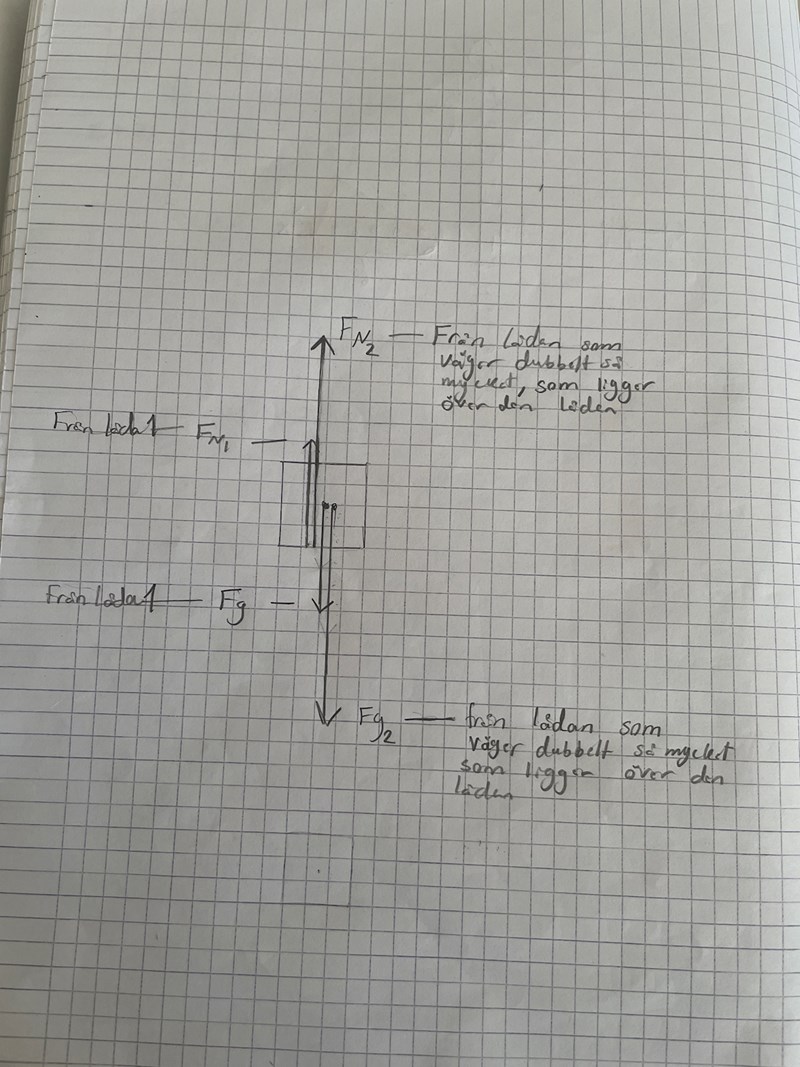 FN2 — Från lådan som
väger dubbelt så
mycket, som ligger
över den lådan
Från låda 1 — FN1 —
Från låda 1 — Fg —
Fg2 — från lådan som
väger dubbelt så mycket
som ligger över den
lådan